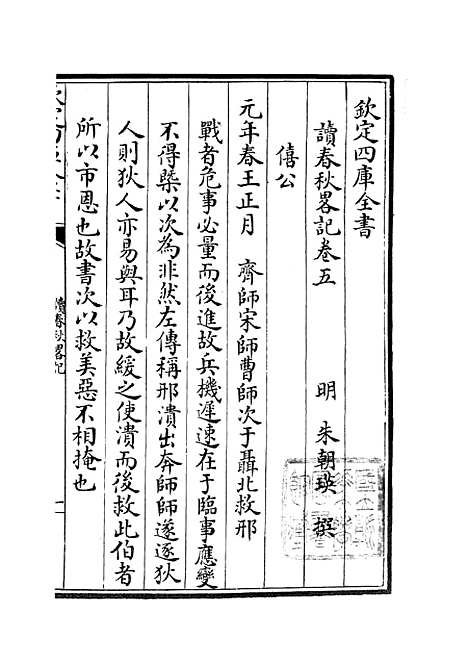 欽定四庫全書
讀春秋畧記卷五
明 朱朝瑛 撰
僖公
元年春王正月 齊師宋師曹師次于聶北救邢
戰者危事必量而後進故兵機遲速在于臨事應變
不得槩以次為非然左傳稱邢潰出奔師師遂逐狄
人則狄人亦易與耳乃故緩之使潰而後救此伯者
所以市恩也故書次以救美惡不相掩也
讀春秋畧記